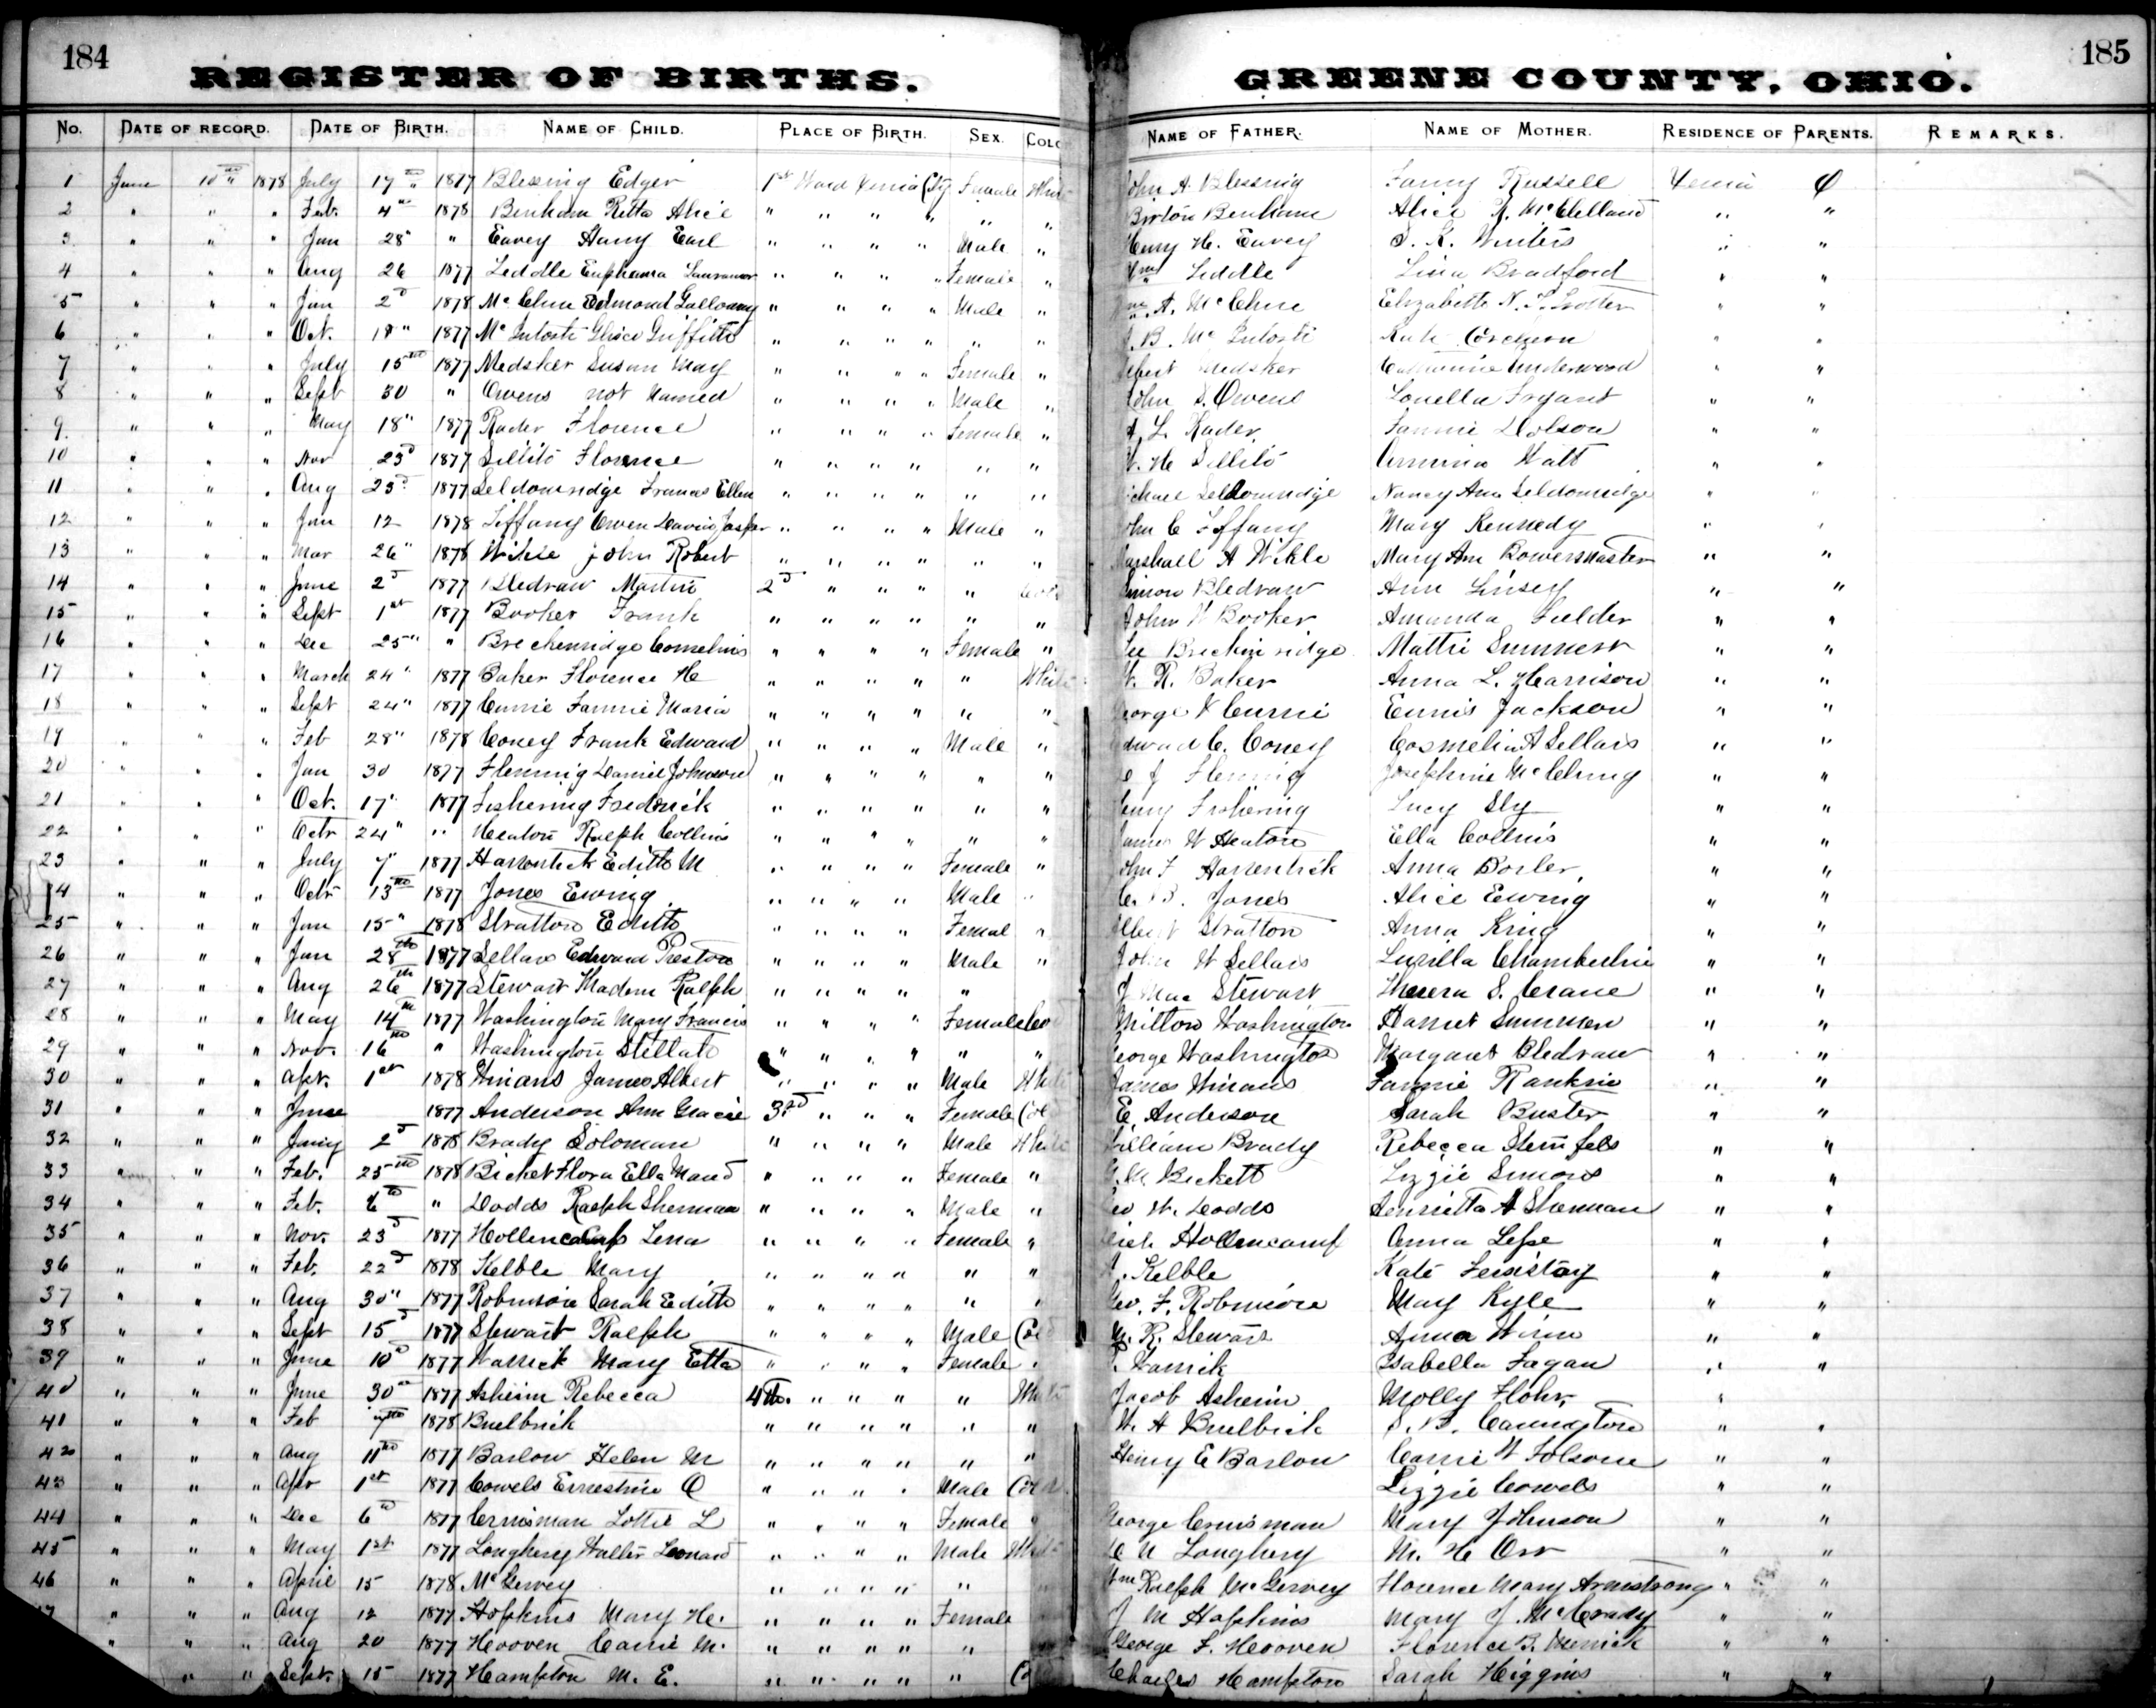 184
REGISTER OF BIRTHS.
GREENE COUNTY, OHIO.
185
No. DATE OF RECORD. DATE OF BIRTH. NAME OF CHILD. PLACE OF BIRTH. SEX. COLO NAME OF FATHER. NAME OF MOTHER. RESIDENCE OF PARENTS. REMARKS.
1 June 10 " 1878 July 17 " 1877 Blessing Edger 1st Ward Xenia City Female John A. Blessing Fanny Russell Xenia O
2 " " " Feb. 4 1878 Benham Retta Alice " " " " " " Benham Alice R. McClelland " "
3 " " " Jan 28 " " Eavey Harry Earl " " " " Male " Henry H. Eavey S. K. Winters " "
4 " " " Aug 26 1877 Liddle Euphema " " " " Female " Wm Liddle Lissa Bradford " "
5 " " " Jan 2d 1878 McClure Edmond Galloway " " " " Male " A. McClure Elizabeth N. T. Trotter " "
6 " " " Oct. 18 " 1877 McIntosh Griffith " " " " " " J. B. McIntosh " "
7 " " " July 15th 1877 Medsker Susan May " " " " Female " Medsker Catharine Underwood " "
8 " " " Sept 30 " Owens not Named " " " " Male " John S. Owens Louella Fryant " "
9 " " " May 18 " 1877 Rader Florence " " " " Female " A. L. Rader Fannie Dolson " "
10 " " " Nov 23d 1877 Sillito Florence " " " " " " W. H. Sillito Watt " "
11 " " " Aug 23d 1877 Seldomridge Frances Ellen " " " " " " Seldomridge Nancy Ann Seldomridge " "
12 " " " Jan 12 1878 Tiffany Owen Jasper " " " " Male " John C Tiffany Mary Kennedy " "
13 " " " Mar 26 " 1878 Wikle John Robert " " " " " " Marshall A Wikle Mary Ann Bowersmaster " "
14 " " " June 2d 1877 Bledraw Martin 2d " " " " Simon Bledraw Ann Linsey " "
15 " " " Sept 1st 1877 Booker Frank " " " " " " John W Booker Amanda Fielder " "
16 " " " Dec 25 " " Breckenridge Cornelius " " " " Female " Lee Breckinridge Mattie Summers " "
17 " " " March 24 " 1877 Baker Florence He " " " " " White W. R. Baker Anna L. Harrison " "
18 " " " Sept 24 " 1877 Currie Fannie Maria " " " " " " George Currie Eunis Jackson " "
19 " " " Feb 28 " 1878 Coney Frank Edward " " " " Male " Edward C. Coney A Sellars " "
20 " " " Jan 30 1877 Fleming Daniel Johnson " " " " " " J Fleming Josephine McClung " "
21 " " " Oct. 17 " 1877 Fishering Fredrick " " " " " " Fishering Lucy Sly " "
22 " " " Octr 24 " " Heaton Ralph Collins " " " " " " James W Heaton Ella Collins " "
23 " " " July 7 " 1877 Edith M " " " " Female " John F Anna Bosler " "
24 " " " Octr 13th 1877 Jones Ewing " " " " Male " Jones Alice Ewing " "
25 " " " Jan 15 " 1878 Stratton Edith " " " " Femal " Albert Stratton Anna King " "
26 " " " Jan 28th 1877 Sellars Edward Preston " " " " Male " John W Sellars Lurilla Chamberlin " "
27 " " " Aug 26th 1877 Stewart Ralph " " " " " J Mac Stewart S. Crane " "
28 " " " May 14th 1877 Washington Mary Francis " " " " Female Milton Washington Harriet " "
29 " " " Nov. 16th " Washington Stellah " " " " " " George Washington Margaret Bledraw " "
30 " " " Apr. 1st 1878 Winans James Albert " " " " Male White James Winans Fannie Rankin " "
31 " " " June 1877 Anderson Ann Gracie 3rd " " " Female Col E. Anderson Sarah Buster " "
32 " " " 2d 1878 Brady Soloman " " " " Male White William Brady Rebecca Steinfels " "
33 " " " Feb. 25th 1878 Bicket Flora Ella Maud " " " " Female " Bickett Lizzie Simons " "
34 " " " Feb. 6th " Dodds Ralph Sherman " " " " Male " Geo W. Dodds Henrietta A Sherman " "
35 " " " Nov. 23d 1877 Hollencamp Lena " " " " Female " Hollencamp Anna " "
36 " " " Feb. 22d 1878 Kelble Mary " " " " " " Kelble Kate " "
37 " " " Aug 30 " 1877 Robinson Sarah Edith " " " " " " Geo. F. Robinson Mary Kyle " "
38 " " " Sept 15 1877 Stewart Ralph " " " " Male Cold M. R. Stewart Anna " "
39 " " " June 10th 1877 Warrick Mary Etta " " " " Female " Warrick Isabella Fagan " "
40 " " " June 30th 1877 Asheim Rebecca 4th. " " " " White Jacob Asheim Molly Flohr "
41 " " " Feb 7th 1878 Buelbrick " " " " " " W. A Buelbrick Cannington " "
42 " " " Aug 11th 1877 Barlow Helen M " " " " " " Henry E Barlow Carrie W Folsom " "
43 " " " Apr 1st 1877 Cowels Ernestine O " " " " Male Lizzie Cowels " "
44 " " " Dec 6th 1877 Crusman Lottie L " " " " Female " George Crusman Mary Johnson " "
45 " " " May 1st 1877 Loughery Walter Leonard " " " " Male White Loughery M. H Orr " "
46 " " " April 15 1878 McGervey " " " " " Wm Ralph McGervey Florence Mary Armstrong " "
" " " Aug 12 1877 Hopkins Mary He. " " " " Female J M Hopkins Mary J. McCrady " "
" " " Aug 20 1877 Hooven Carrie M. " " " " " George F. Hooven Florence B. Merrick " "
" " Sept. 15 1877 Hampton M. E. " " " " " Charles Hampton Sarah Higgins " "